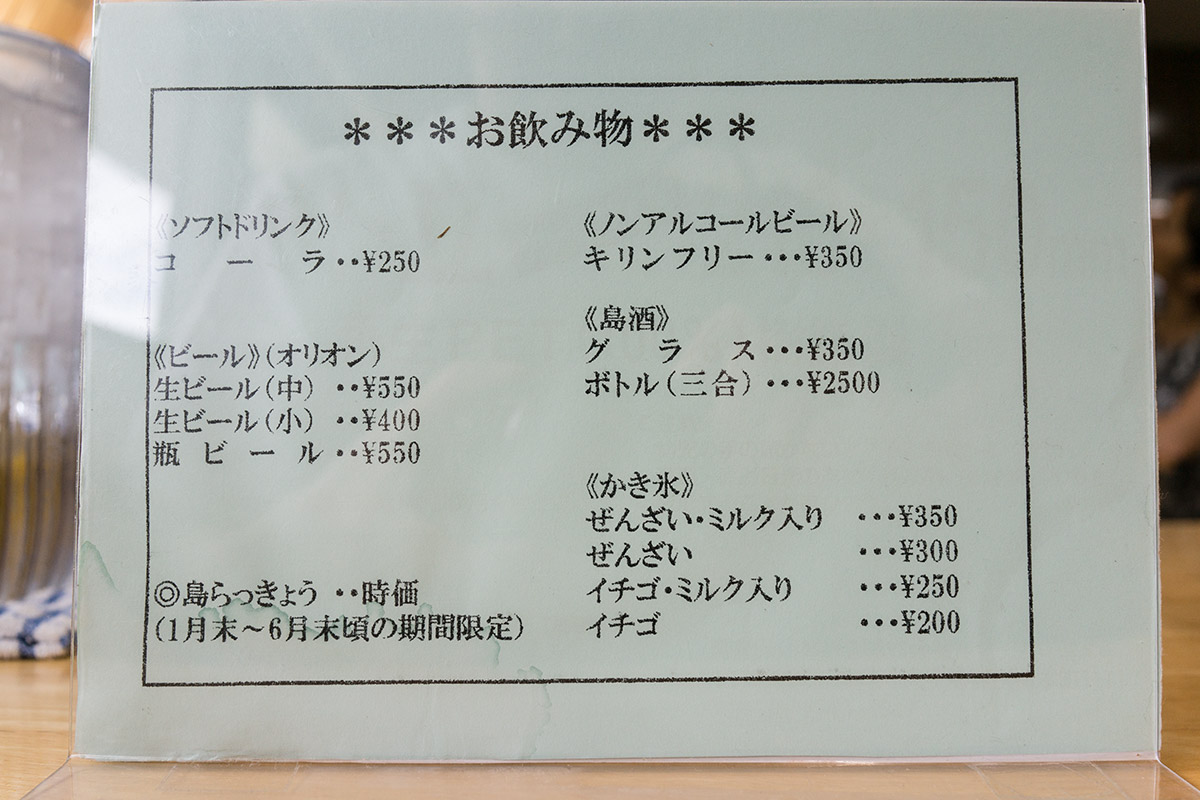 ＊＊＊お飲み物＊＊＊
《ソフトドリンク》
コーラ‥¥250
《ビール》（オリオン）
生ビール（中）‥¥550
生ビール（小）‥¥400
瓶ビール‥¥550
◎島らっきょう‥時価
（1月末～6月末頃の期間限定）
《ノンアルコールビール》
キリンフリー…¥350
《島酒》
グラス…¥350
ボトル（三合）…¥2500
《かき氷》
ぜんざい・ミルク入り…¥350
ぜんざい…¥300
イチゴ・ミルク入り…¥250
イチゴ…¥200